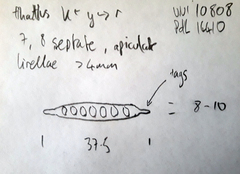 thallus K+ y → r
UWI 10808
PdL 16410
7, 8 septate, apiculate
lirellae >4mm
tags
= 8-10
| 37.5 |